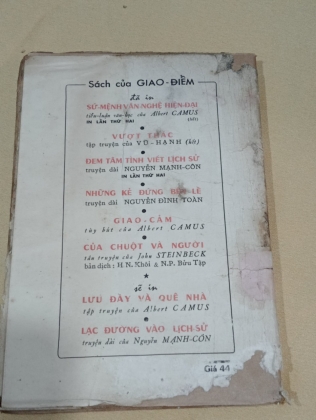 Sách của GIAO-ĐIỂM
đã in
SỨ-MỆNH VĂN-NGHỆ HIỆN-ĐẠI
tiểu-luận văn-học của Albert CAMUS
IN LẦN THỨ HAI (hết)
VƯỢT THÁC
tập truyện của VŨ-HẠNH (hết)
ĐEM TÂM TÌNH VIẾT LỊCH SỬ
truyện dài NGUYỄN MẠNH-CÔN
IN LẦN THỨ HAI
NHỮNG KẺ ĐỨNG BÊN LỀ
truyện dài NGUYỄN ĐÌNH TOÀN
GIAO-CẢM
tùy bút của Albert CAMUS
CỦA CHUỘT VÀ NGƯỜI
tân truyện của John STEINBECK
bản dịch : H N. Khôi & N.P. Bửu Tập
sẽ in
LƯU ĐÀY VÀ QUÊ NHÀ
tập truyện của Albert CAMUS
LẠC ĐƯỜNG VÀO LỊCH-SỬ
truyện dài của Nguyễn MẠNH-CÔN
Giá 44